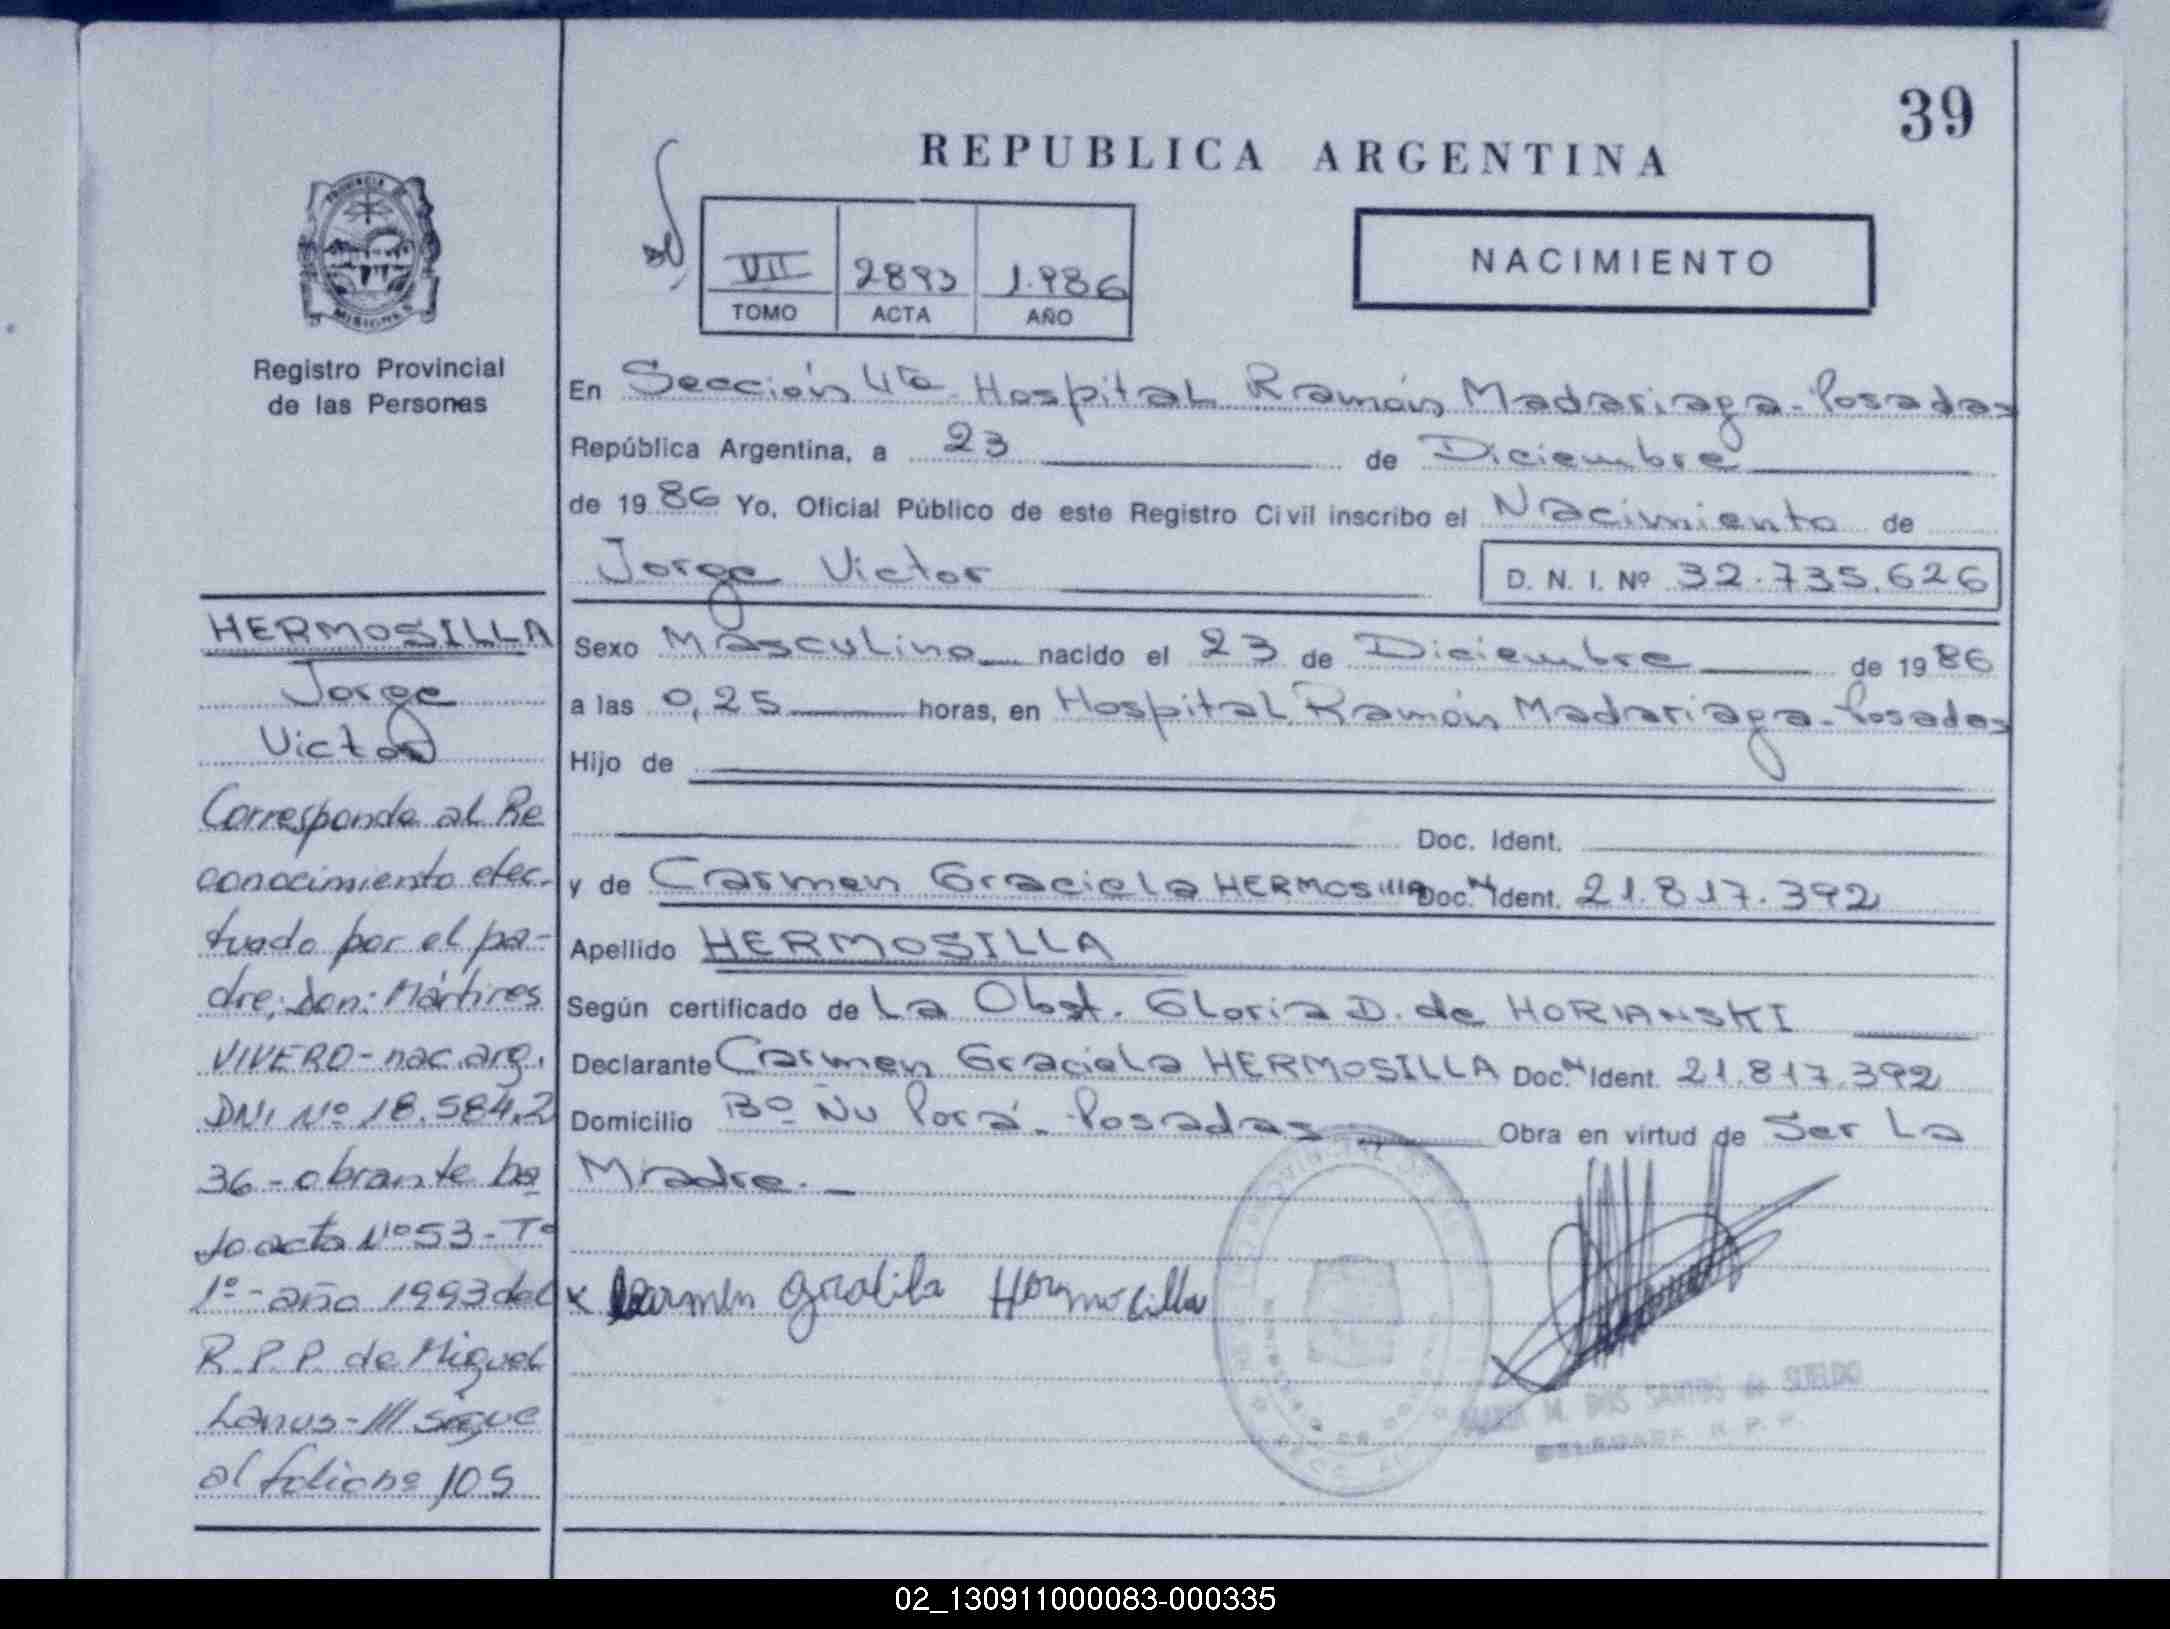 39
REPUBLICA ARGENTINA
NACIMIENTO
VII 2893 1.986
TOMO ACTA AÑO
PROVINCIA DE
MISIONES
Registro Provincial
de las Personas
En Sección 4ta Hospital Ramón Madariaga - Posadas
República Argentina, a 23 de Diciembre
de 1986 Yo, Oficial Público de este Registro Civil inscribo el Nacimiento de
Jorge Victor D. N. I. Nº 32.735.626
Sexo Masculino nacido el 23 de Diciembre de 1986
a las 0,25 horas, en Hospital Ramón Madariaga - Posadas
Hijo de
Doc. Ident.
y de Carmen Graciela HERMOSIllA Doc. Ident. 21.817.392
Apellido HERMOSILLA
Según certificado de La Obst. Gloria D. de HORIANSKI
Declarante Carmen Graciela HERMOSILLA Doc. Ident. 21.817.392
Domicilio Bº Ñu Porá - Posadas Obra en virtud de Ser La
Madre. -
x Carmen Graciela Hermosilla
MARIA M. DOS SANTOS de SUELDO
R. P. P.
HERMOSILLA
Jorge
Victor
Corresponde al Re
conocimiento efec-
tuado por el pa-
dre; Don: Mártires
VIVERO - nac. arg.
DNI Nº 18.584.2
36 - obrante ba
jo acta Nº 53 - Tº
1º - año 1993 del
R.P.P. de Miguel
Lanus - /// sigue
al folio nº 105
02_130911000083-000335